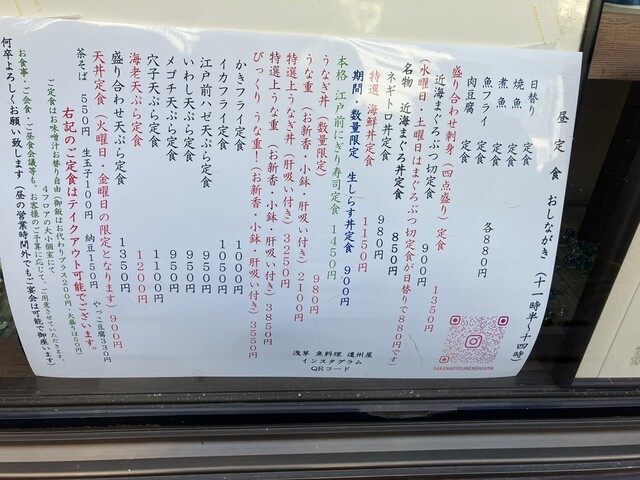 昼定食 おしながき (十一時半~十四時)
日替り 定食
焼魚 定食
煮魚 定食
魚フライ 定食
肉豆腐 定食
各880円
盛り合わせ刺身(四点盛り)定食 1350円
近海まぐろぶつ切定食 900円
(水曜日・土曜日はまぐろぶつ切定食が日替りで880円です)
名物 近海まぐろ丼定食 850円
ネギトロ丼定食 980円
特選 海鮮丼定食 1150円
期間・数量限定 生しらす丼定食 900円
本格 江戸前にぎり寿司定食 1450円
うなぎ丼(数量限定) 980円
うな重(お新香・小鉢・肝吸い付き)2100円
特選上うなぎ丼(肝吸い付き)3250円
特選上うな重(お新香・小鉢・肝吸い付き)3850円
びっくり うな重!(お新香・小鉢・肝吸い付き)3550円
かきフライ定食 1000円
イカフライ定食 1000円
江戸前ハゼ天ぷら定食 1050円
いわし天ぷら定食 950円
メゴチ天ぷら定食 950円
穴子天ぷら定食 1100円
海老天ぷら定食 1200円
盛り合わせ天ぷら定食 1350円
天丼定食(火曜日・金曜日の限定となります)900円
茶そば 550円 生玉子100円 納豆150円 やっこ豆腐330円
右記のご定食はテイクアウト可能でございます。
ご定食はお味噌汁お替り自由(御飯はお代わりプラス200円・大盛りは50円)
4フロアの大小個室にて
お食事・ご会食・ご昼食会議等も、お客様のご予算に応じて、ご用意させていただきます
何卒よろしくお願い致します(昼の営業時間外でもご宴会は可能で御座います)
浅草 魚料理 遠州屋
インスタグラム
QRコード
SAKANARYOURIENSHUUYA